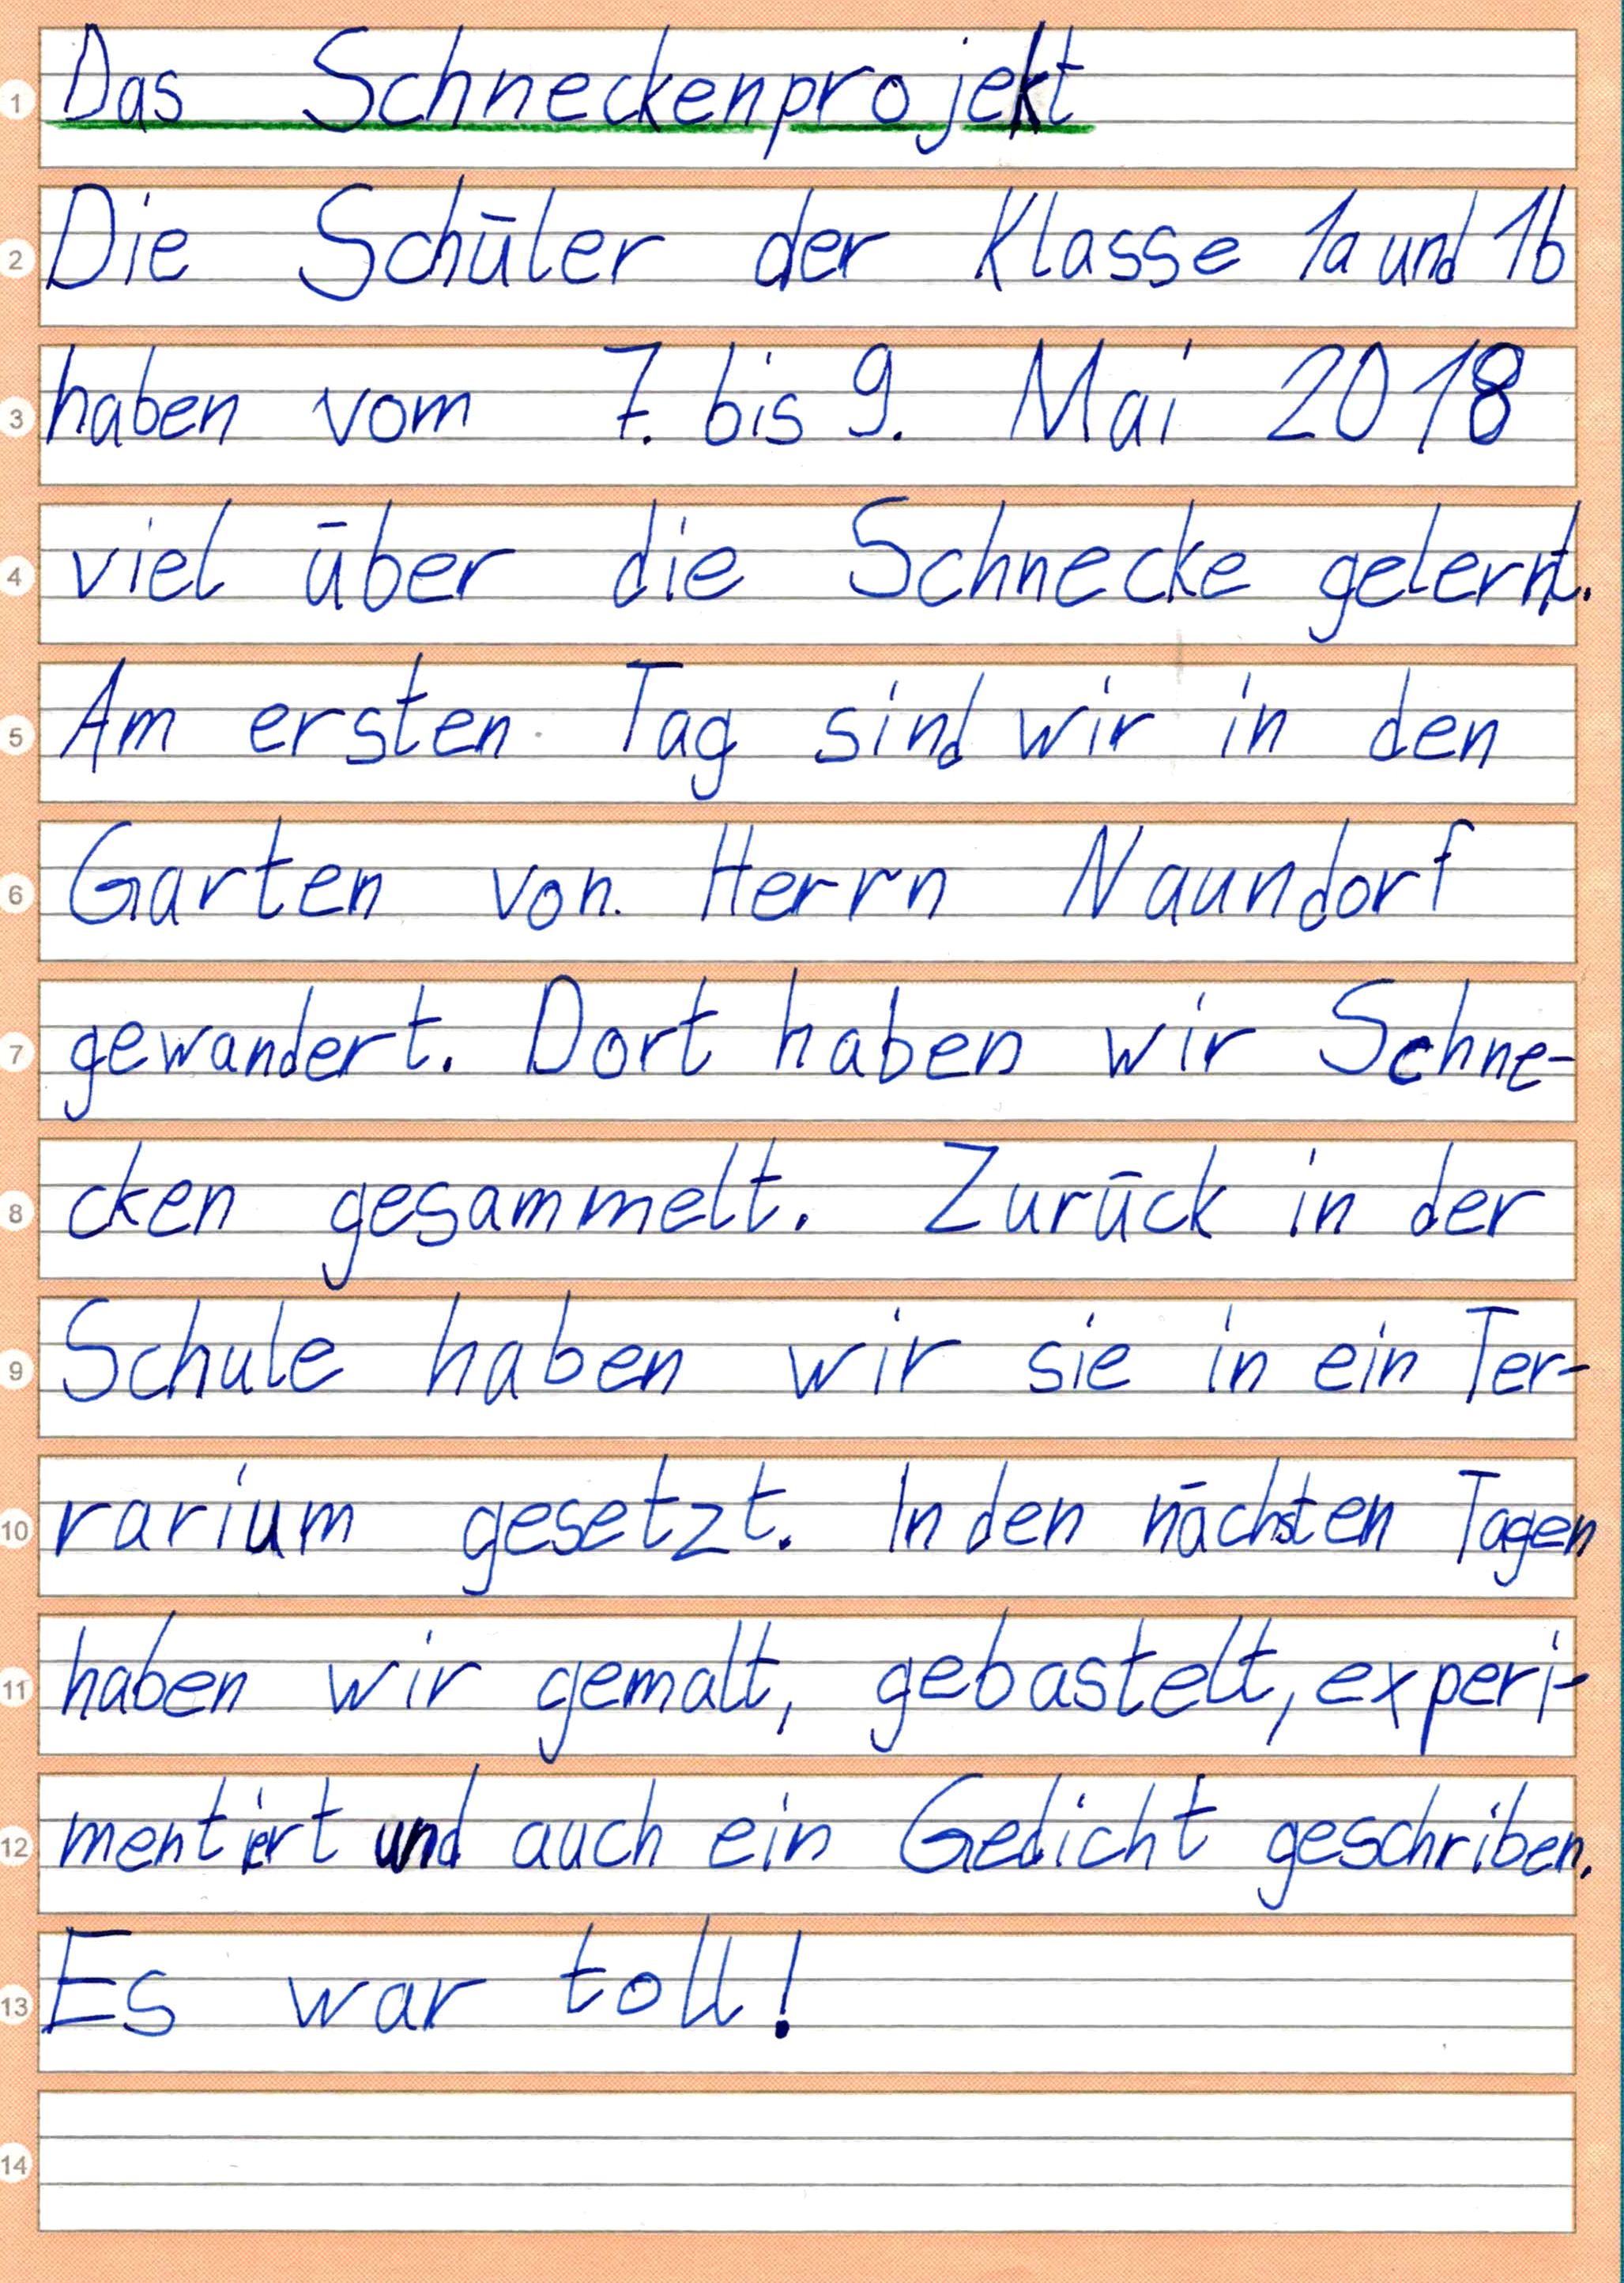 1 Das Schneckenprojekt
2 Die Schüler der Klasse 1a und 1b
3 haben vom 7. bis 9. Mai 2018
4 viel über die Schnecke gelernt.
5 Am ersten Tag sind wir in den
6 Garten von Herrn Naundorf
7 gewandert. Dort haben wir Schne-
8 cken gesammelt. Zurück in der
9 Schule haben wir sie in ein Ter-
10 rarium gesetzt. In den nächsten Tagen
11 haben wir gemalt, gebastelt, experi-
12 mentiert und auch ein Gedicht geschriben.
13 Es war toll!
14